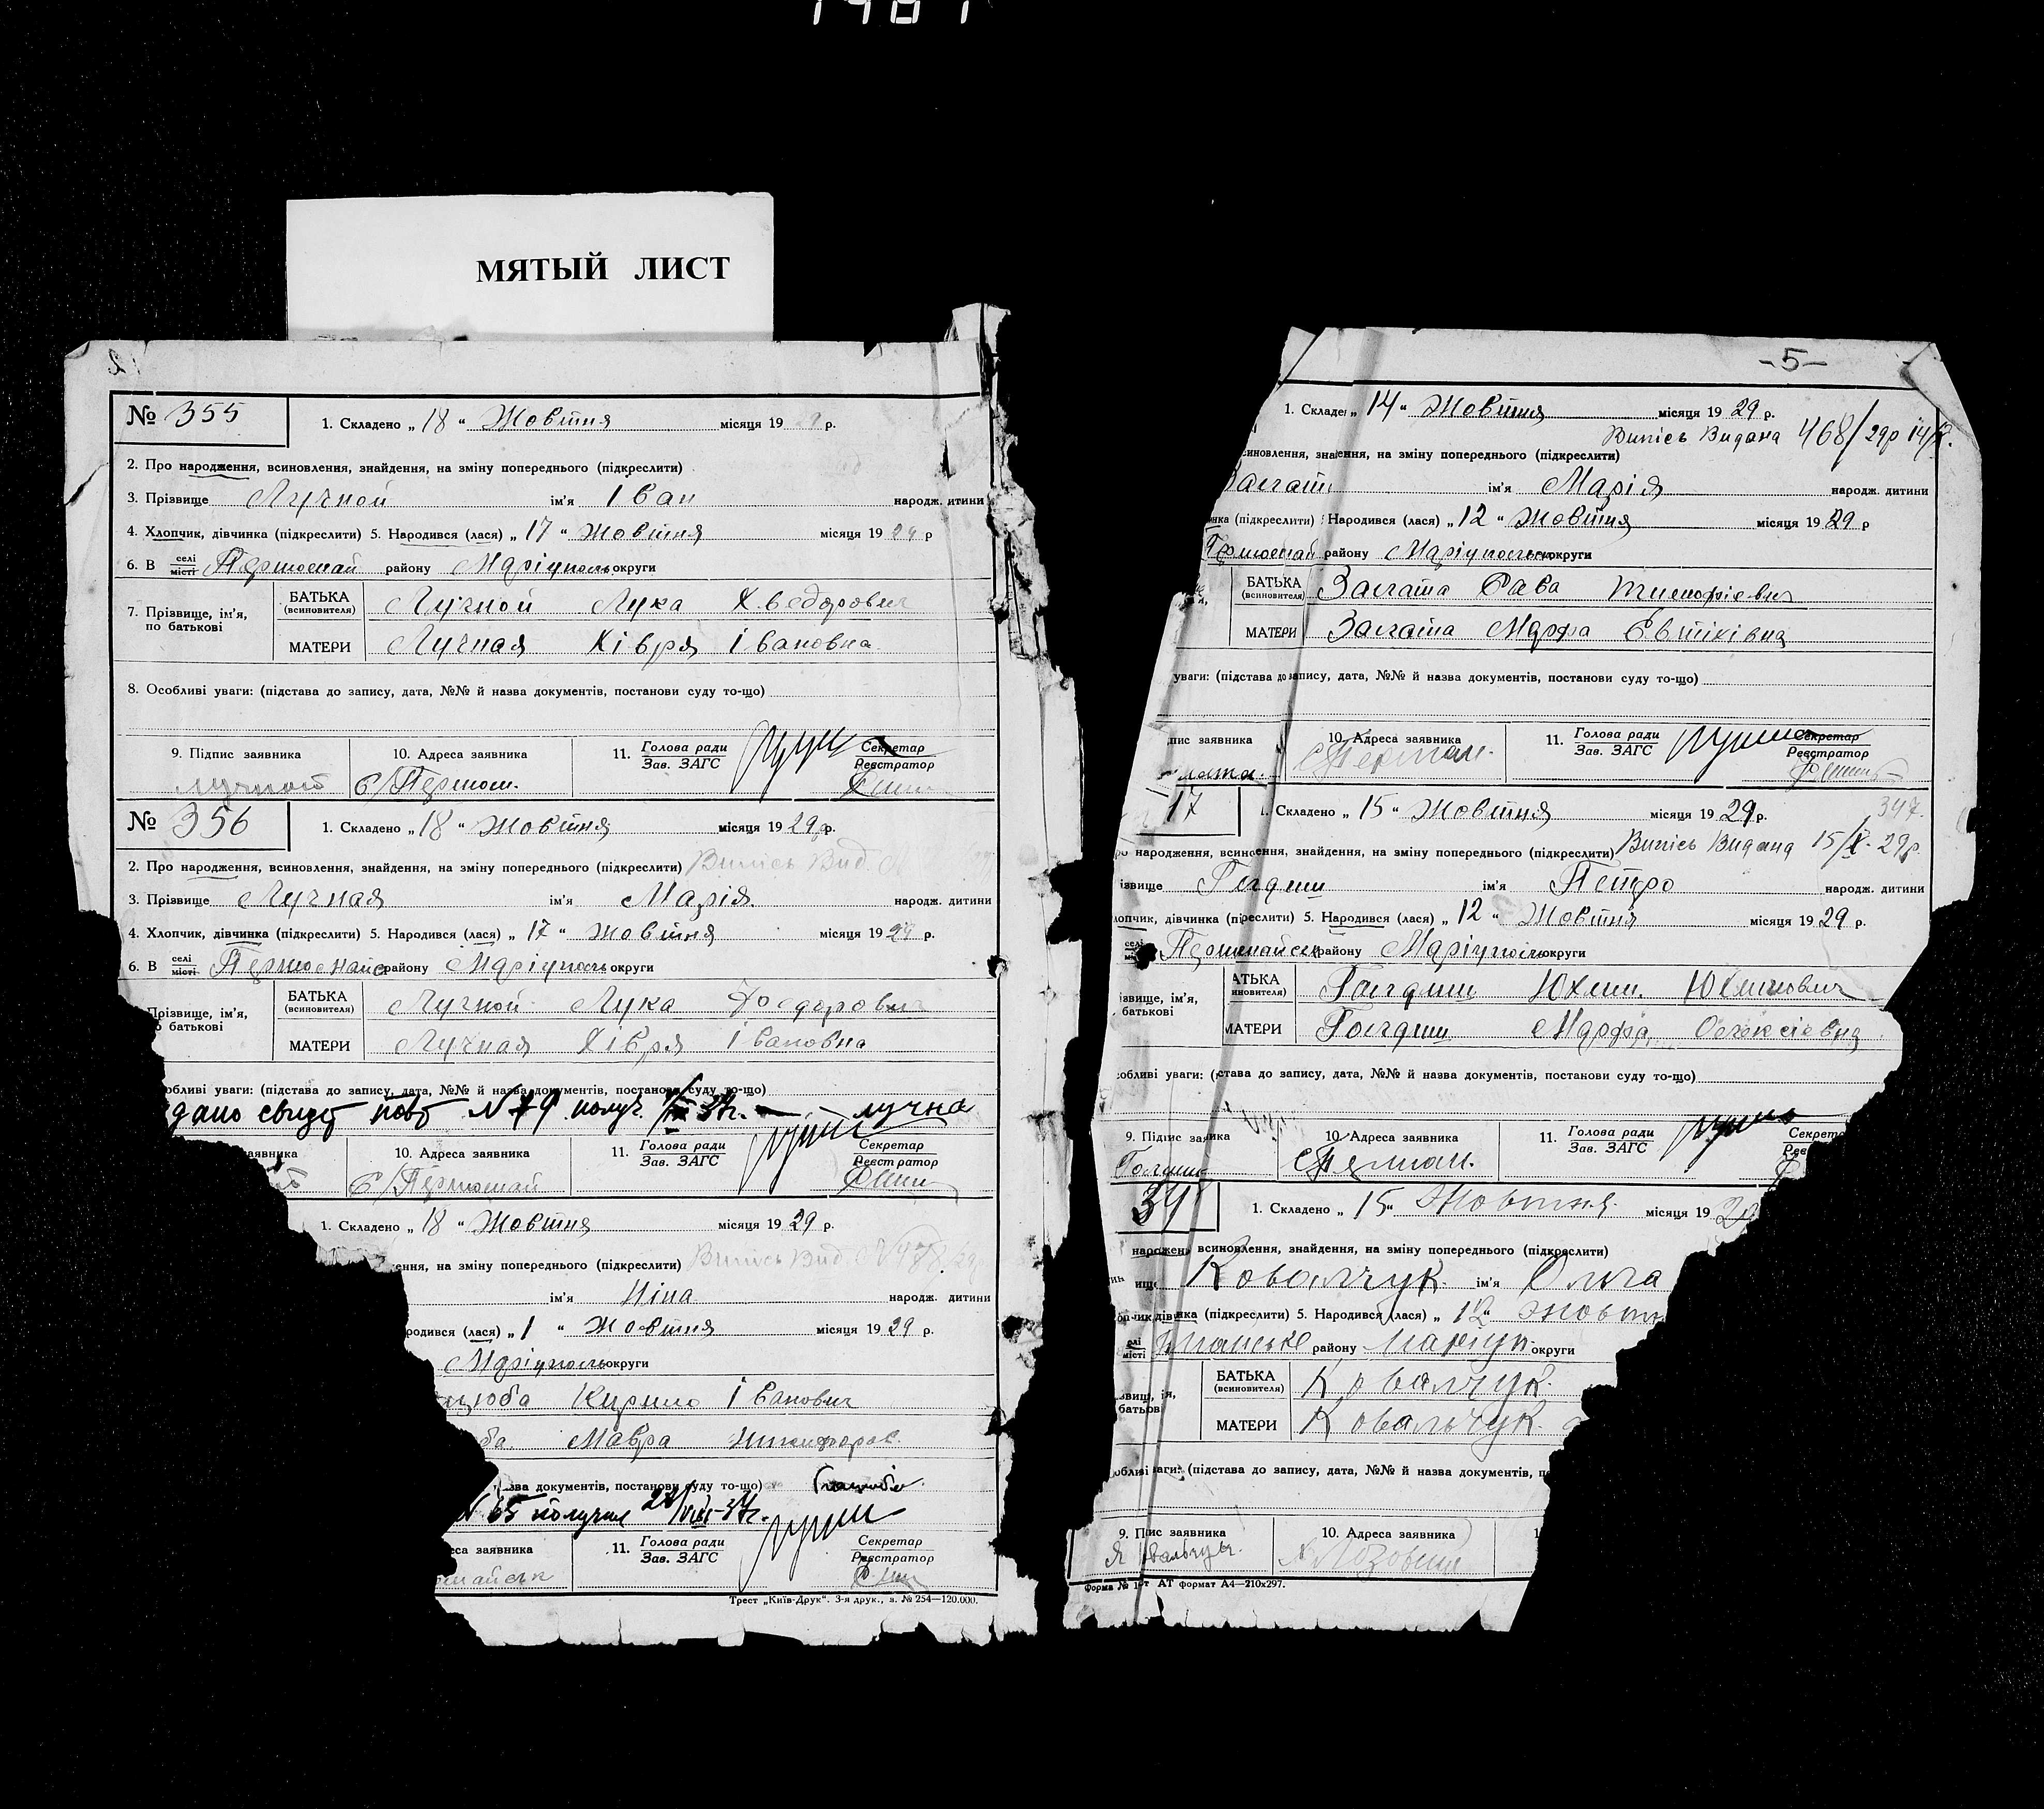 МЯТЫЙ ЛИСТ
№ 355
1. Складено „ 18 “ Жовтня місяця 19 29 р.
2. Про народження, всиновлення, знайдення, на зміну попереднього (підкреслити)
3. Прізвище Лучной ім'я Іван народж. итини
4. Хлопчик, дівчинка (підкреслити) 5. Народився (лася) „ 17 “ Жовтня місяця 19 29 р
6. В селі місті Першомай району Маріуполь округи
7. Прізвище, ім'я, по батькові
БАТЬКА (всиновителя) Лучной Лука Хведорович
МАТЕРИ Лучная Хівря Івановна
8. Особливі уваги: (підстава до запису, дата, №№ й назва документів, постанови суду то-що)
9. Підпис заявника 10. Адреса заявника 11. Голова ради Зав. ЗАГС Секретар Реєстратор
Лучной С/Першом.
№ 356
1. Складено „ 18 “ Жовтня місяця 19 29 р.
2. Про народження, всиновлення, знайдення, на зміну попереднього (підкреслити) Випісь Вид.
3. Прізвище Лучная ім'я Марія народж. дитини
4. Хлопчик, дівчинка (підкреслити) 5. Народився (лася) „ 17 “ Жовтня місяця 19 29 р.
6. В селі місті Першомайс району Маріуполь округи
Прізвище, ім'я, о батькові
БАТЬКА (всиновителя) Лучной Лука Федорович
МАТЕРИ Лучная Хівря Івановна
обливі уваги: (підстава до запису, дата, №№ й назва документів, постанови суду то-що)
дано свидет повт №79 получ. 34г. Лучна
заявника 10. Адреса заявника 11. Голова ради Зав. ЗАГС Секретар Реєстратор
С/Першомай
1. Складено „ 18 “ Жовтня місяця 19 29 р.
ення, на зміну попереднього (підкреслити) Випісь Вид.
ім'я Ніна народж. дитини
родився (лася) „ 1 “ Жовтня місяця 19 29 р.
Маріуполь округи
цюба Кирило Іванович
ба Мавра Никифоров.
зва документів, постанови суду то-що)
№ 65 получил 34г.
еса заявника 11. Голова ради Зав. ЗАГС Секретар Реєстратор
майськ
Трест „Київ-Друк“. 3-я друк., з. № 254—120.000.
-5-
1. Складе „ 14 “ Жовтня місяця 19 29 р.
Випісь Видана 468/29р
синовлення, знаєння, на зміну попереднього (підкреслити)
ім'я Марія народж. дитини
инка (підкреслити) Народився (лася) „ 12 “ Жовтня місяця 19 29 р
Першомай району Маріуполь округи
БАТЬКА (всиновителя) Залата Сава Тимофієвич
МАТЕРИ Залата Марфа Євтіхівна
уваги: (підстава до запису, дата, №№ й назва документів, постанови суду то-що)
пис заявника 10. Адреса заявника 11. Голова ради Зав. ЗАГС Секретар Реєстратор
лата. С/Першом.
17
1. Складено „ 15 “ Жовтня місяця 19 29 р. 347.
ро народження, всиновлення, знайдення, на зміну попереднього (підкреслити) Випісь Видана 15/X 29р.
ізвище ім'я Петро народж. дитини
лопчик, дівчинка (підкреслити) 5. Народився (лася) „ 12 “ Жовтня місяця 19 29 р.
селі Першомайськ району Маріуполь округи
ізвище, ім'я, батькові
АТЬКА (иновителя) Голдиш Юхим. Юхимович
МАТЕРИ Голдиш Марфа Олексієвна
собливі уваги: (става до запису, дата, №№ й назва документів, постанови суду то-що)
9. Підпис заявника 10. Адреса заявника 11. Голова ради Зав. ЗАГС Секрета Реє
Голдиш С/Першом.
348
1. Складено „ 15 “ Жовтня місяця 19 29
народжен всиновлення, знайдення, на зміну попереднього (підкреслити)
ище Ковальчук ім'я Ольга
опчик дівчинка (підкреслити) 5. Народився (лася) „ 12 “ Жовтн
елі місті району Маріуп. округи
звищ, ія, батьков
БАТЬКА (всиновителя) Ковальчук
МАТЕРИ Ковальчук
обливі ваги: (підстава до запису, дата, №№ й назва документів, п
9. Ппис заявника 10. Адреса заявника 1
Ковальчук. Лозовий
Форма № 1-т АТ формат А4—210х297.